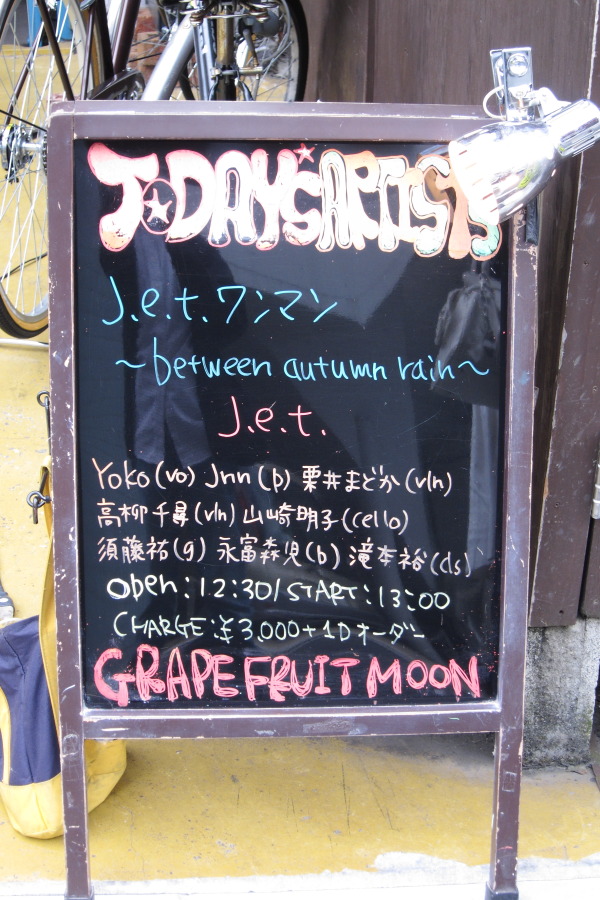 TODAY'S ARTISTS
J.e.t.ワンマン
～between autumn rain～
J.e.t.
Yoko(vo) Jnn(p) 栗井まどか(vln)
高柳千尋(vln) 山崎明子(cello)
須藤祐(g) 永富森児(b) 滝本裕(ds)
OPEN:12:30/START:13:00
CHARGE:¥3,000+1Dオーダー
GRAPEFRUIT MOON